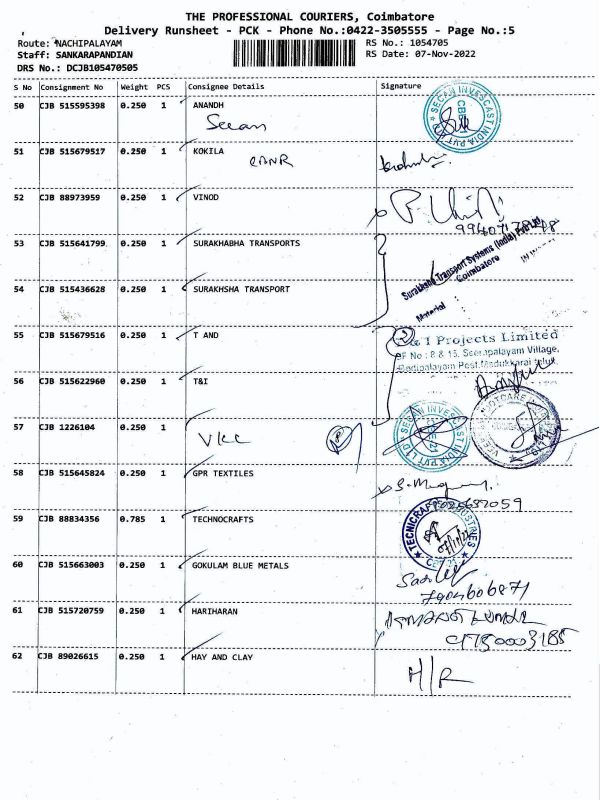 THE PROFESSIONAL COURIERS, Coimbatore
Delivery Runsheet - PCK - Phone No.:0422-3505555 - Page No.:5
Route: NACHIPALAYAM RS No.: 1054705
Staff: SANKARAPANDIAN RS Date: 07-Nov-2022
DRS No.: DCJB105470505
S No Consignment No Weight PCS Consignee Details Signature
50 CJB 515595398 0.250 1 ANANDH
Secan
SECAN INVESCAST INDIA PVT LTD
51 CJB 515679517 0.250 1 KOKILA
52 CJB 88973959 0.250 1 VINOD
53 CJB 515641799 0.250 1 SURAKHABHA TRANSPORTS
Surakhsha Transport Systems (India) Pvt Ltd
Coimbatore
Material :
54 CJB 515436628 0.250 1 SURAKHSHA TRANSPORT
55 CJB 515679516 0.250 1 T AND
& I Projects Limited
SF No : 8 & 15, Seerapalayam Village,
Post, Madukkarai
56 CJB 515622960 0.250 1 T&I
57 CJB 1226104 0.250 1
VKC
SECAN INVESCAST INDIA PVT LTD
58 CJB 515645824 0.250 1 GPR TEXTILES
59 CJB 88834356 0.785 1 TECHNOCRAFTS
TECNICRAFT INDUSTRIES
60 CJB 515663003 0.250 1 GOKULAM BLUE METALS
7904606871
61 CJB 515720759 0.250 1 HARIHARAN
9750003185
62 CJB 89026615 0.250 1 HAY AND CLAY
H/R